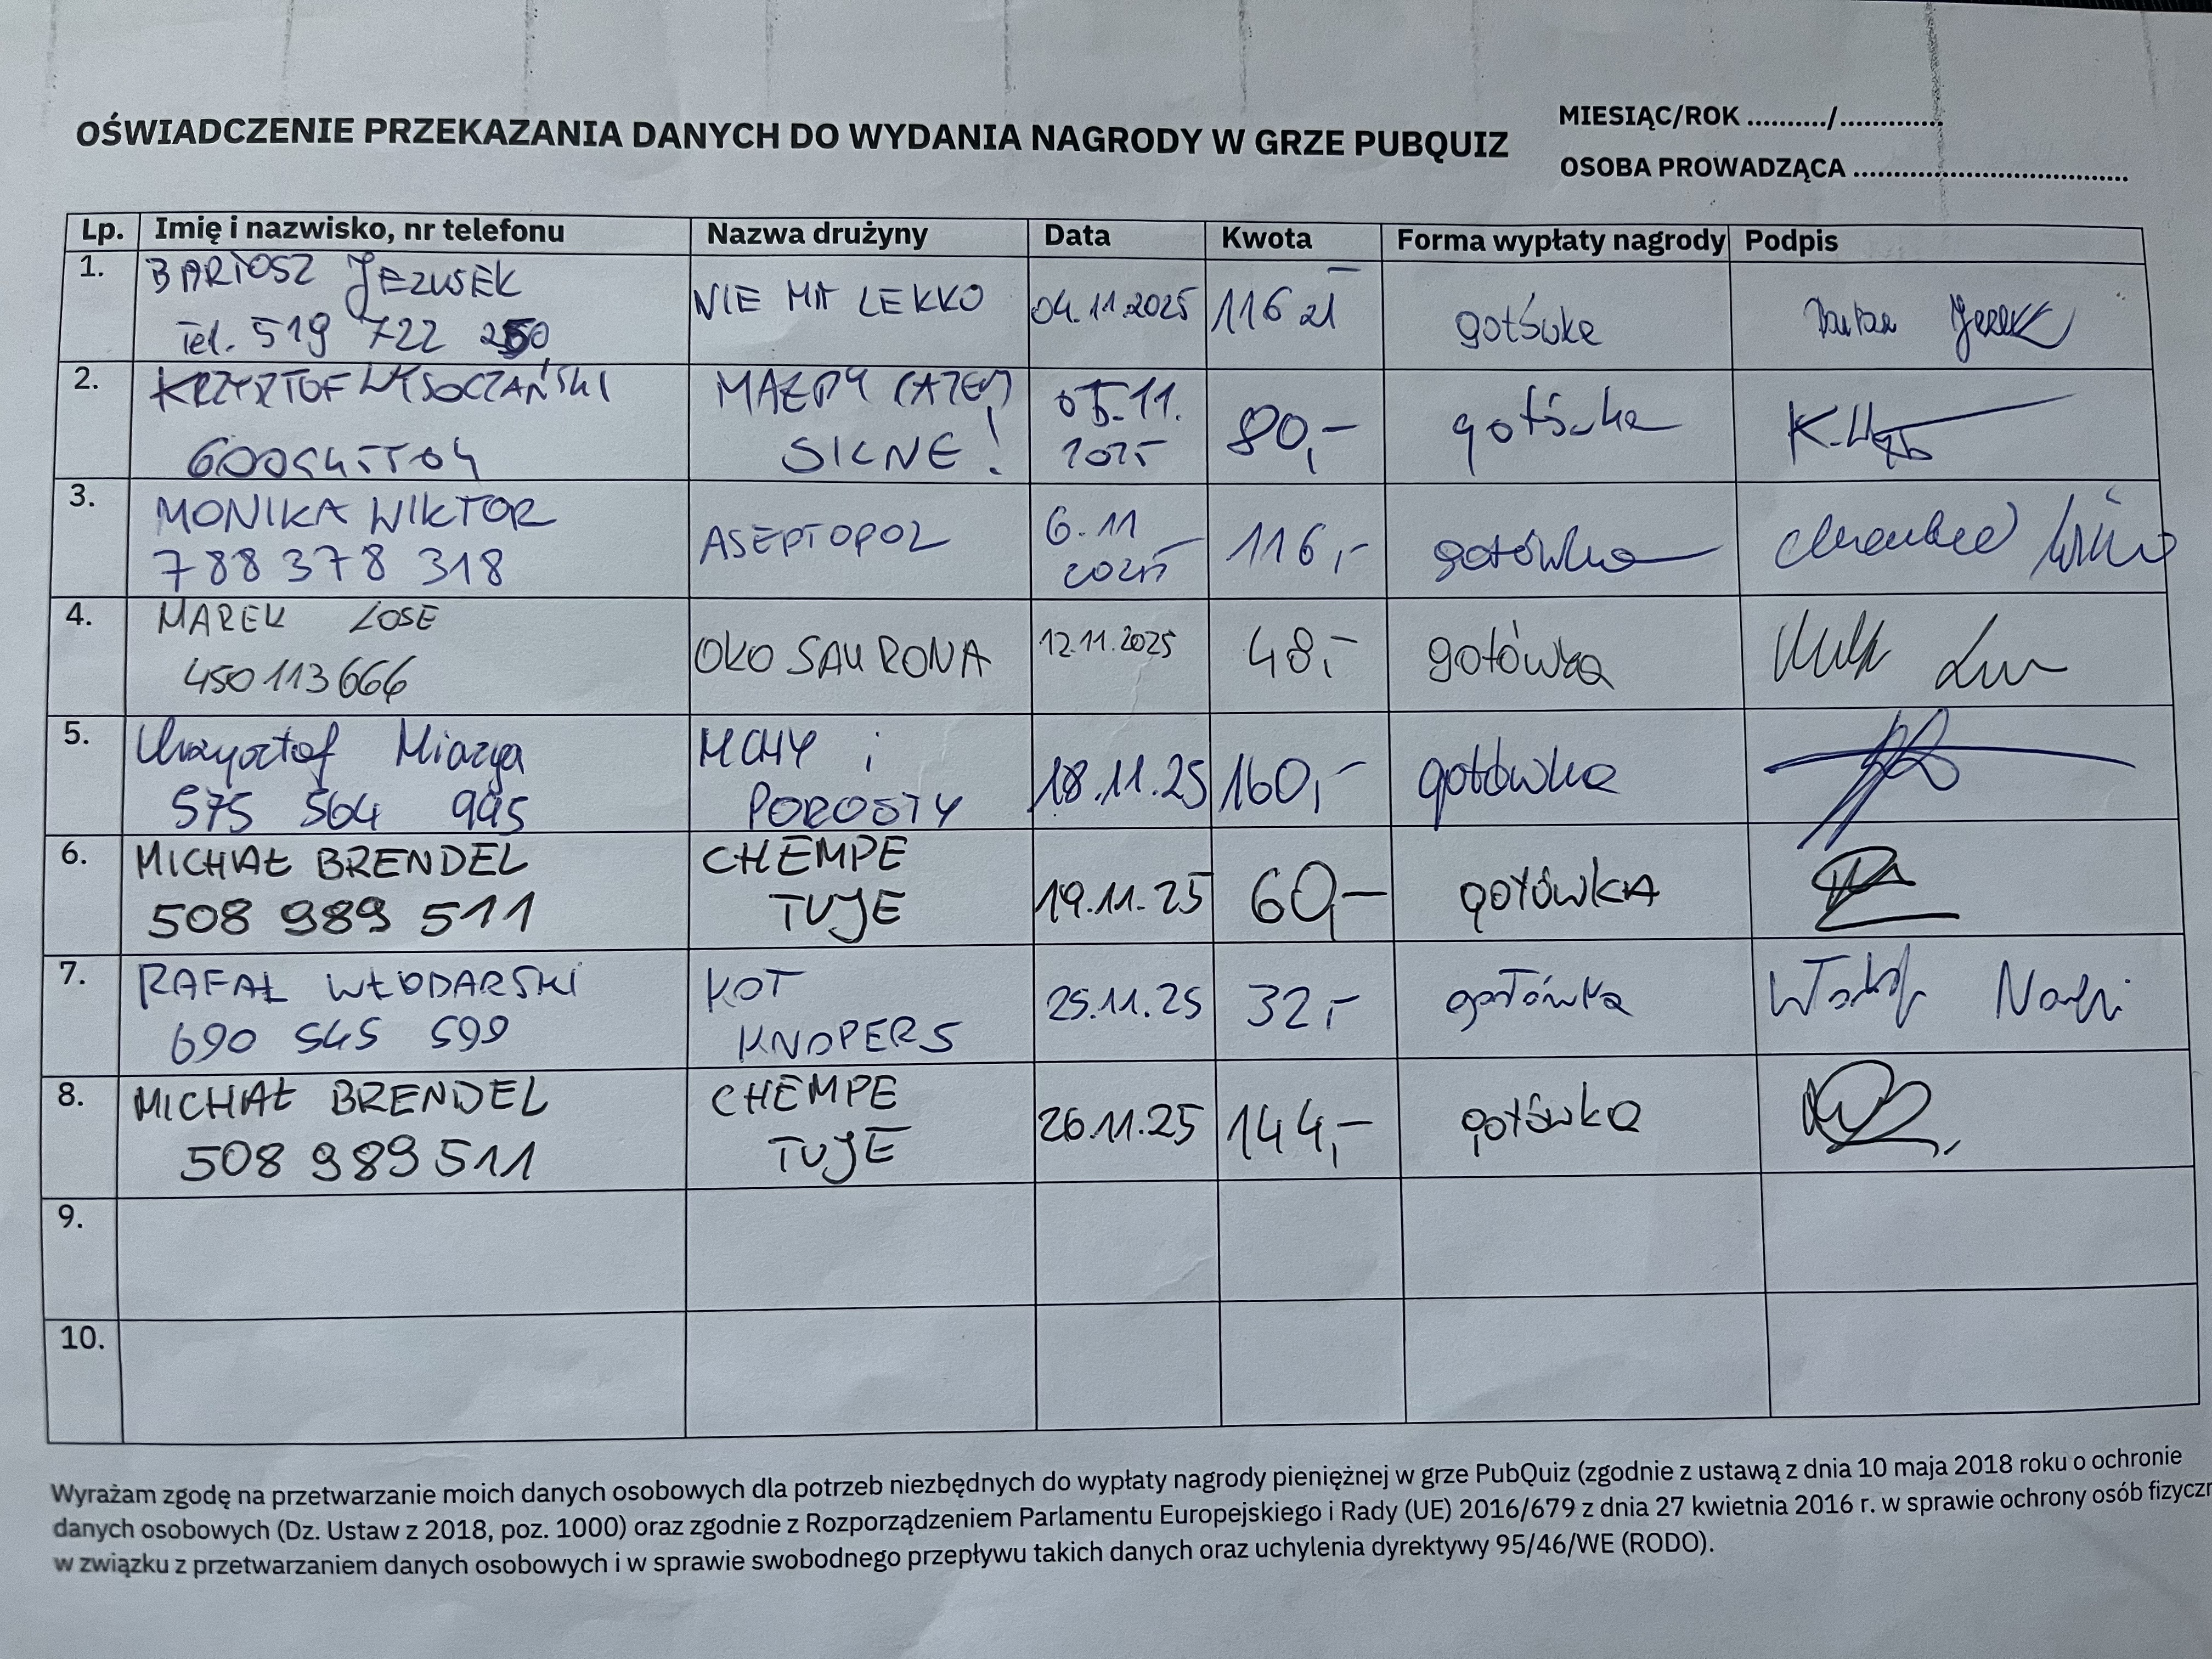 OŚWIADCZENIE PRZEKAZANIA DANYCH DO WYDANIA NAGRODY W GRZE PUBQUIZ
MIESIĄC/ROK ........../.............
OSOBA PROWADZĄCA ..................................
Lp. Imię i nazwisko, nr telefonu Nazwa drużyny Data Kwota Forma wypłaty nagrody Podpis
1. BARTOSZ JEZUSEK NIE MA LEKKO 04.11.2025 116 zł gotówka
Tel. 519 722 250
2. KRZYSZTOF WYSOCZAŃSKI MAŁPY RAZEM 05.11. 80,- gotówka
SILNE! 2025
3. MONIKA WIKTOR ASEPTOPOL 6.11 116,- gotówka
788 378 318 2025
4. MAREK LOSE OKO SAURONA 12.11.2025 48,- gotówka
450 113 666
5. Krzysztof Miazga MCHY i 18.11.25 160,- gotówka
575 564 995 POROSTY
6. MICHAŁ BRENDEL CHEMPE 19.11.25 60,- gotówkA
508 989 511 TUJE
7. RAFAŁ WŁODARSKI KOT 25.11.25 32,- gotówka
690 545 599 KNOPERS
8. MICHAŁ BRENDEL CHEMPE 26.11.25 144,- gotówka
508 989 511 TUJE
9.
10.
Wyrażam zgodę na przetwarzanie moich danych osobowych dla potrzeb niezbędnych do wypłaty nagrody pieniężnej w grze PubQuiz (zgodnie z ustawą z dnia 10 maja 2018 roku o ochronie
danych osobowych (Dz. Ustaw z 2018, poz. 1000) oraz zgodnie z Rozporządzeniem Parlamentu Europejskiego i Rady (UE) 2016/679 z dnia 27 kwietnia 2016 r. w sprawie ochrony osób fizyczn
w związku z przetwarzaniem danych osobowych i w sprawie swobodnego przepływu takich danych oraz uchylenia dyrektywy 95/46/WE (RODO).